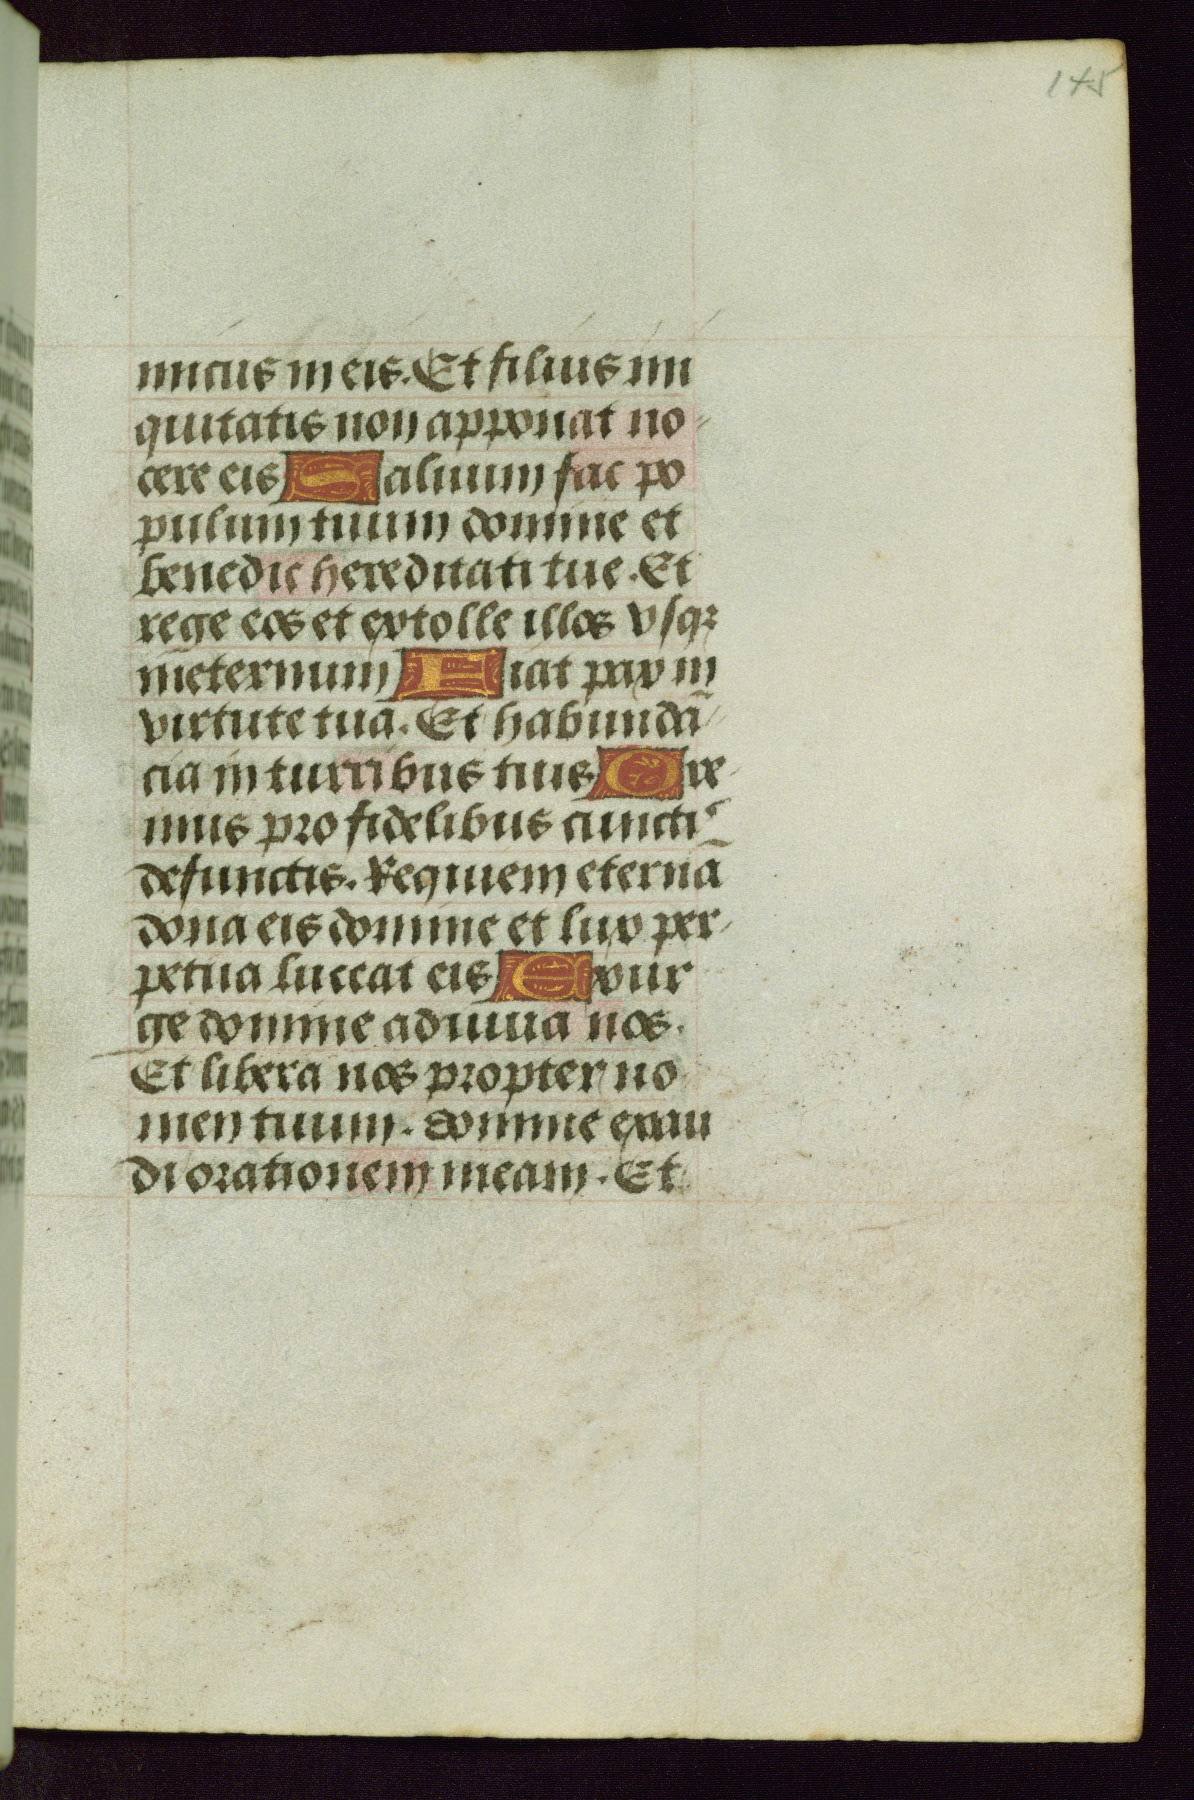 145
imicus in eis. Et filius ini
quitatis non apponat no
cere eis Saluum fac po
pulum tuum domine et
benedic hereditati tue. Et
rege eos et extolle illos vsqꝫ
in eternum Fiat pax in
virtute tua. Et habundā
cia in turribus tuis Ore
mus pro fidelibus cunctis
defunctis. Requiem eternā
dona eis domine et lux per
petua luceat eis Exur
ge domine adiuua nos.
Et libera nos propter no
men tuum. domine exau
di orationem meam. Et